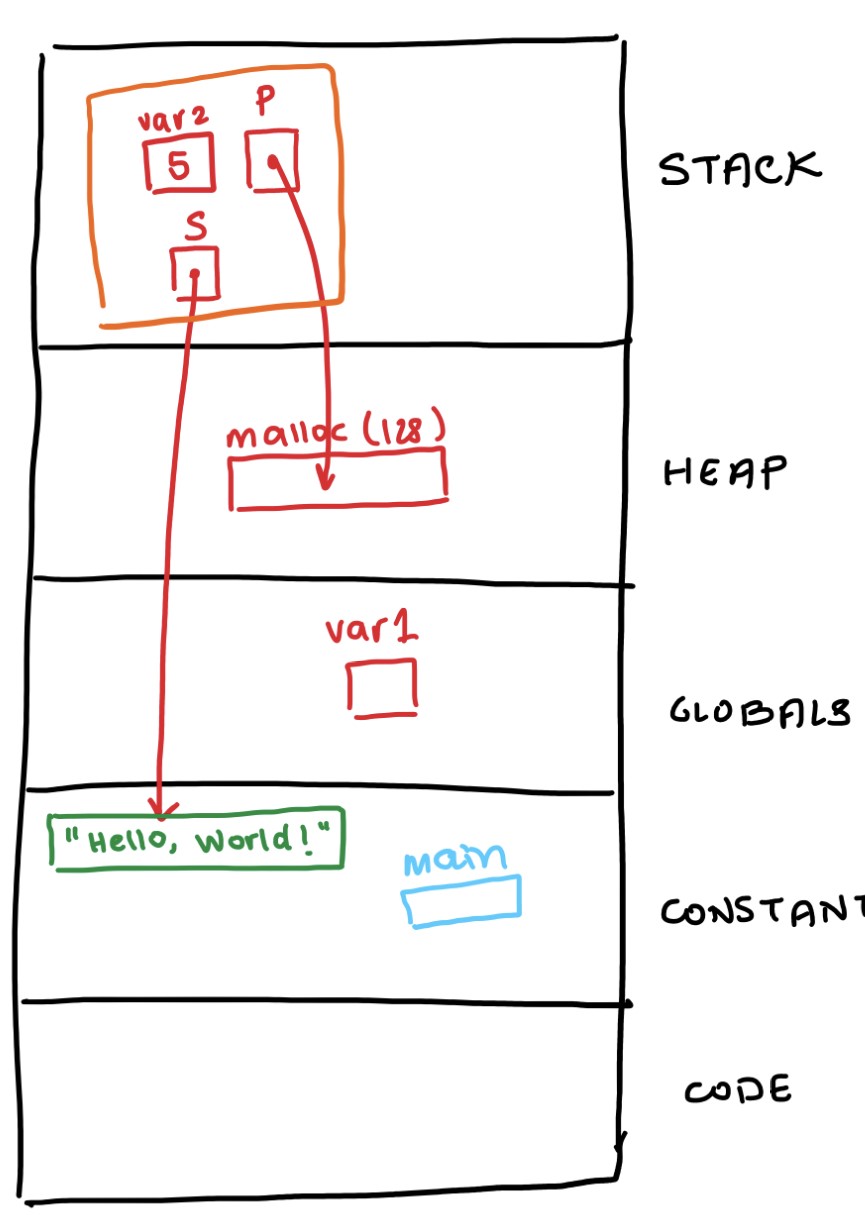 var2
P
5
STACK
S
malloc (128)
HEAP
var1
GLOBALS
"Hello, World!"
main
CONSTANT
CODE